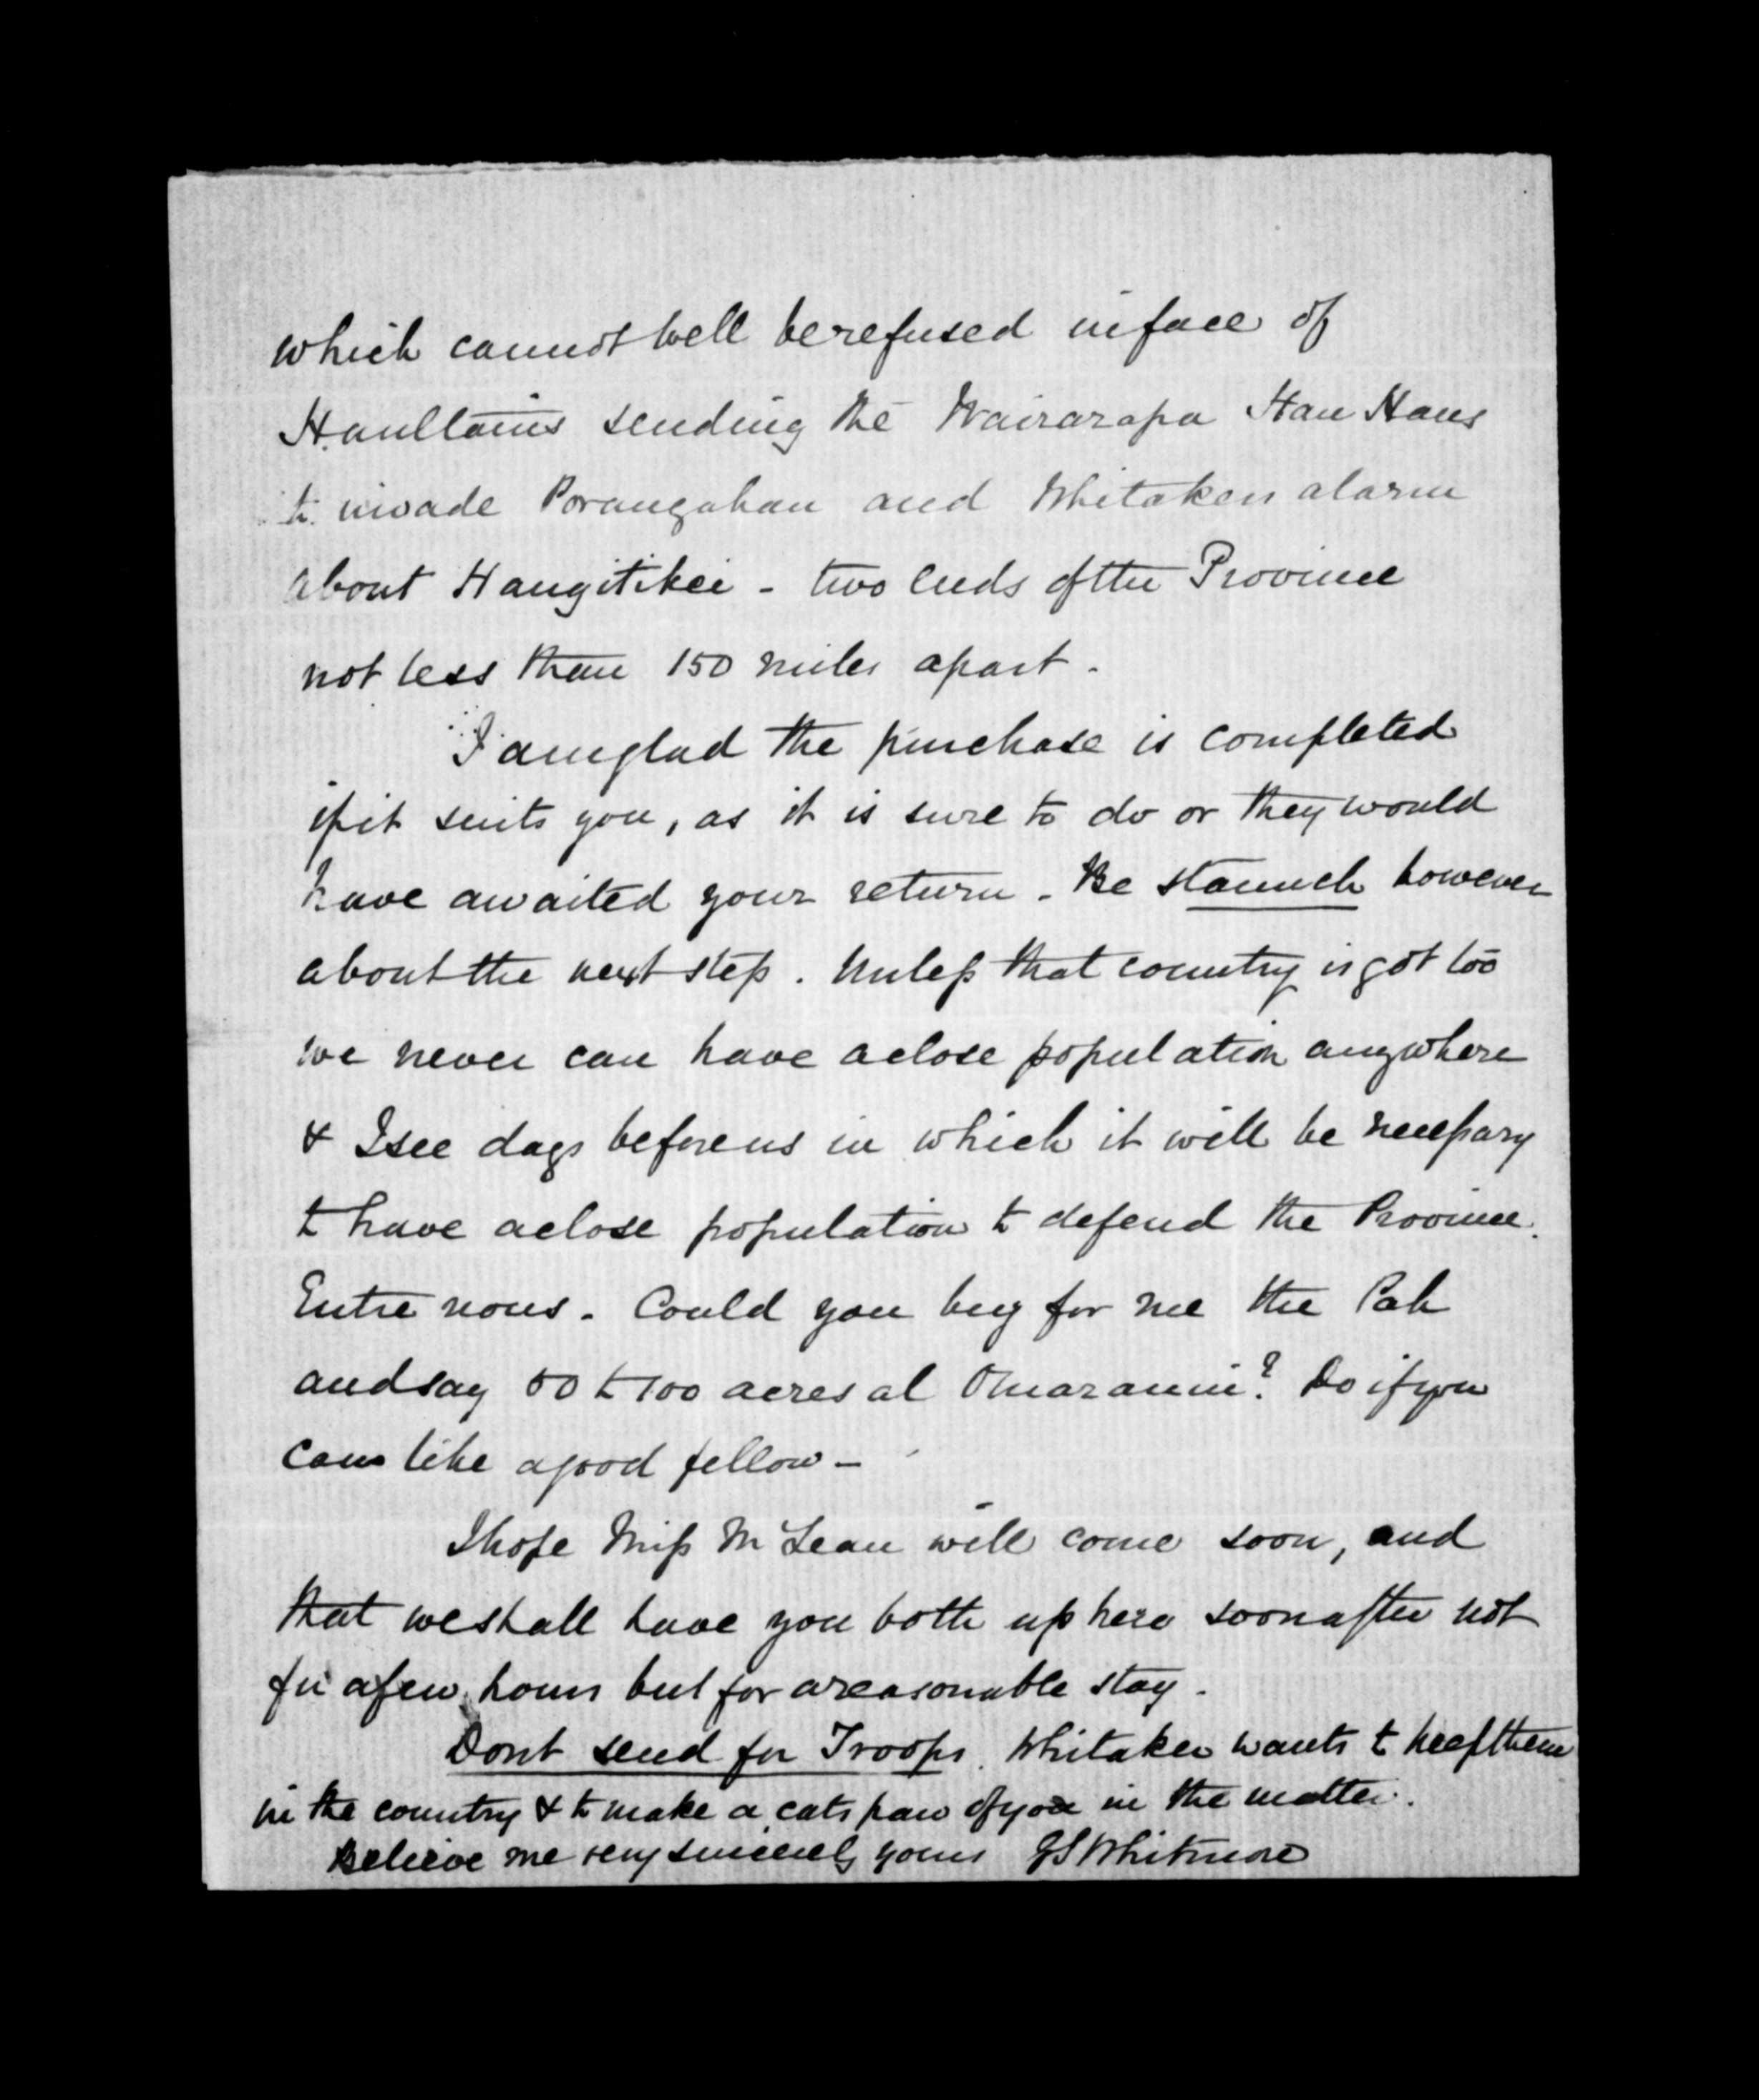 which cannot well be refused in face of
Haultains sending the Wairarapa Hau Haus
to invade Porangahau and Whitakers alarm
about Hangitikei - two ends of the Province
not less than 150 miles apart.
I am glad the purchase is completed
if it suits you, as it is sure to do or they would
have awaited your return. Be staunch however
about the next step. Unless that country is got too
we never can have a close population anywhere
& I see days before us in which it will be necessary
to have a close population to defend the Province.
Entre nous. Could you buy for me the Pah
and say 50 to 100 acres at Omaranui? Do if you
can like a good fellow -
I hope Miss McLean will come soon, and
that we shall have you both up here soon after not
for a few hours but for a reasonable stay.
Dont send for Troops. Whitaker wants to keep them
in the country & to make a cats paw of you in the matter.
Believe me very sincerely yours GS Whitmore